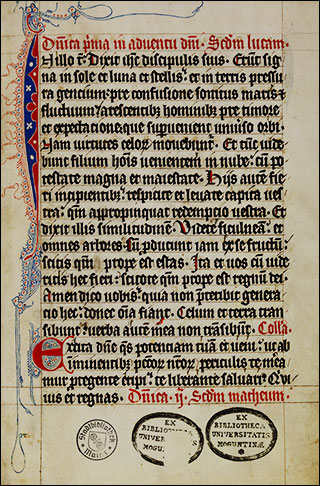 Dñica p̃ma in adventu dñi. Scđm lucam.
N illo t̃. Dixit ihc̄ discipulis suis. Erūt sig
na in sole et luna et stellis: et in terris pressu
ra gencium: pre confusione sonitus maris et
fluctuum: arescentibus hoĩnibus pre timore
et expectacione: que supervenient univ̾so orbi.
Nam virtutes celoꝝ movebunt̃. Et tūc vide
bunt filium hoĩs venientem in nube: cū po
testate magna et maiestate. Hijs autē fie
ri incipientibus: respicite et levate capita ves
tra: qm̄ appropinquat redempcio vestra. Et
dixit illis similitudinē. Videte ficulneā: et
omnes arbores: cū producūt iam ex se fructū:
scitis qm̄ prope est estas. Ita et vos cū vide
ritis hec fieri: scitote qm̄ prope est regnū dei.
Amen dico vobis: quia non preteribit genera
cio hec: donec om̃ia fiant. Celum et terra tran
sibunt: verba autē mea non transibūt. Colla
Excita dn̄e qs̄ potenciam tuā et veni: ut ab
iminentibus pctōꝝ nr̄oꝝ periculis te merea
mur protegente eripi: te liberante salvari. Qui vi
vis et regnas. Dñica ij. Scđm matheum.
Stadtbibliothek
Mainz
EX
BIBLIOTHECA
UNIVERS
MOGU
EX
BIBLIOTHECA
UNIVERSITATIS
MOGUNTINÆ